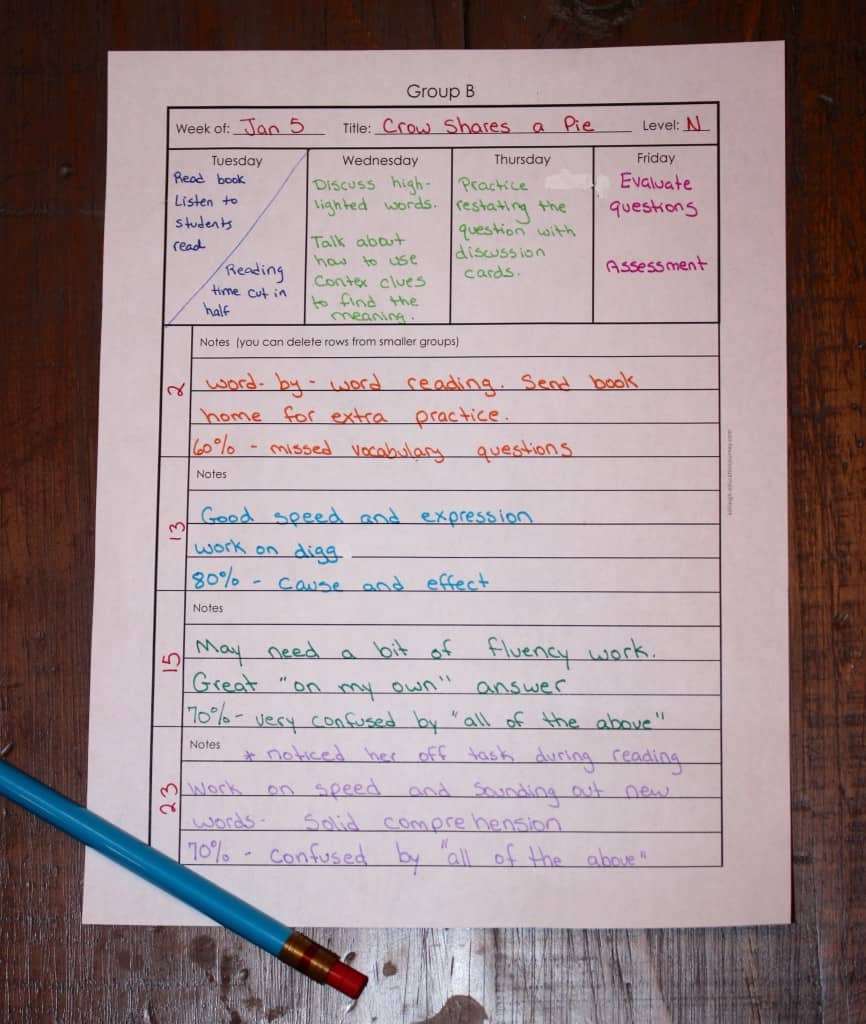 Group B
Week of: Jan 5 Title: Crow Shares a Pie Level: N
Tuesday
Read book
Listen to
students
read
Reading
time cut in
half
Wednesday
Discuss high-
lighted words.
Talk about
how to use
Contex clues
to find the
meaning.
Thursday
Practice
restating the
question with
discussion
cards.
Friday
Evaluate
questions
Assessment
2
Notes (you can delete rows from smaller groups)
word-by-word reading. Send book
home for extra practice.
60% - missed vocabulary questions
13
Notes
Good speed and expression
work on digg
80% - cause and effect
15
Notes
May need a bit of fluency work.
Great "on my own" answer
70% - very confused by "all of the above"
23
Notes * noticed her off task during reading
work on speed and sounding out new
words. Solid comprehension
70% - confused by "all of the above"